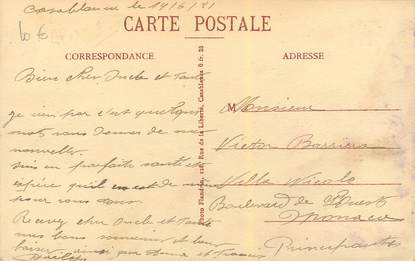 Casablanca le 14/6/21
60 €
CARTE POSTALE
CORRESPONDANCE
ADRESSE
Bien cher Oncle et Tante
Je vien par c'est quelques
mots vous donner de mes
nouvelles.
suis en parfaite santé et
espère qu'il en est de même
pour vous deux
Recevez cher Oncle et Tante
mes bons souvenirs et bons
baisers ainsi que
Photo Flandrin, 128, Rue de la Liberté, Casablanca 0 fr. 25
M Monsieur
Victor Barriera
Villa Nicole
Boulevard de l'Ouest
Monaco
Principauté